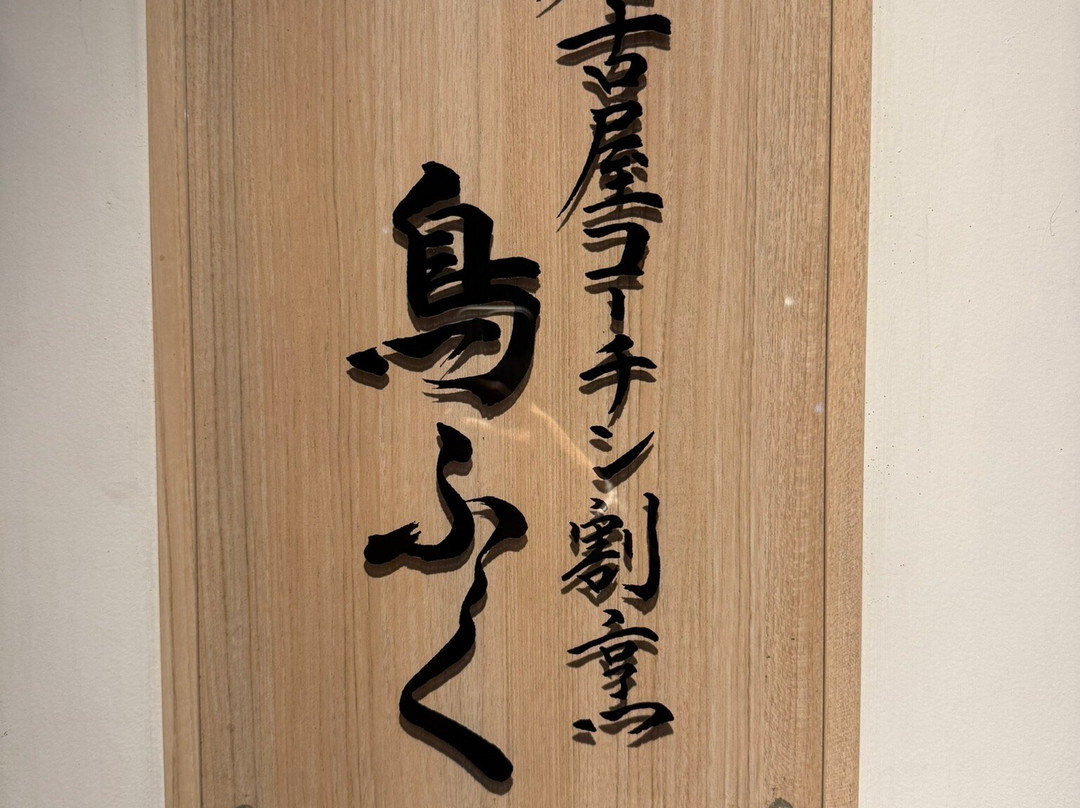 古屋コーチン割烹
鳥ふく